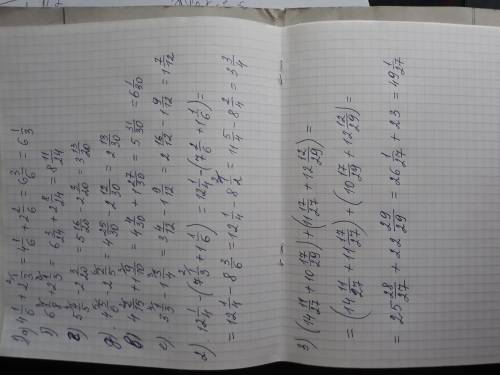 1) а) 4 1/6 + 2 1/3 = 4 1/6 + 2 2/6 = 6 3/6 = 6 1/3
= 6 9/24 + 2 2/24 = 8 11/24
г) 5 4/5 - 2 3/20 = 5 16/20 - 2 3/20 = 3 13/20
д) 4 5/6 - 2 2/5 = 4 25/30 - 2 12/30 = 2 13/30
в) 4 2/15 + 1 9/10 = 4 4/30 + 1 27/30 = 5 31/30 = 6 1/30
е) 3 1/3 - 1 3/4 = 3 4/12 - 1 9/12 = 2 16/12 - 1 9/12 = 1 7/12
2) 12 1/4 - (7 1/3 + 1 1/6) = 12 1/4 - (7 2/6 + 1 1/6) =
= 12 1/4 - 8 3/6 = 12 1/4 - 8 1/2 = 11 5/4 - 8 2/4 = 3 3/4
3) (14 11/27 + 10 17/29) + (11 17/27 + 12 12/29) =
= (14 11/27 + 11 17/27) + (10 17/29 + 12 12/29) =
= 25 28/27 + 22 29/29 = 26 1/27 + 23 = 49 1/27